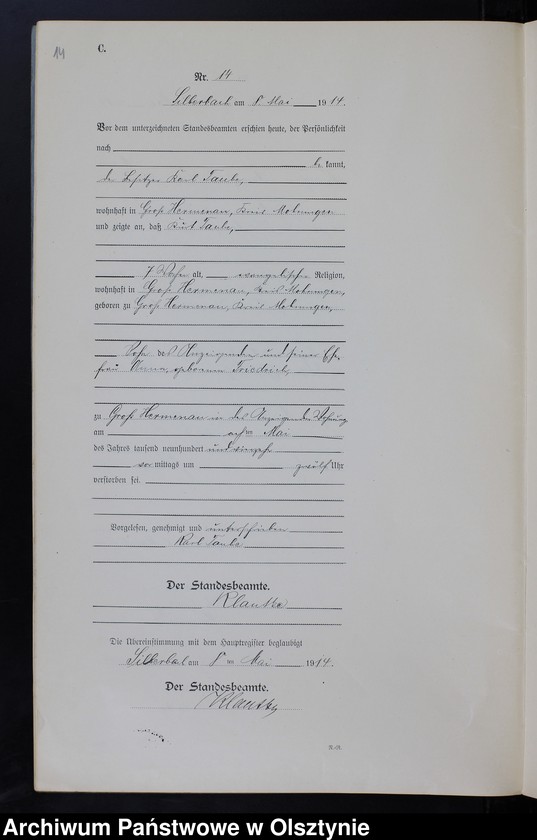 14
C.
Nr. 14
Silberbach am 8. Mai 1914.
Vor dem unterzeichneten Standesbeamten erschien heute, der Persönlichkeit
nach
be kannt,
der Besitzer Karl Taube,
wohnhaft in Groß Hermenau, Kreis Mohrungen
und zeigte an, daß Kurt Taube,
7 alt, evangelischer Religion,
wohnhaft in Groß Hermenau, Kreis Mohrungen,
geboren zu Groß Hermenau, Kreis Mohrungen,
Sohn des Anzeigenden und seiner Ehe
frau Anna, geborenen Friedrich,
zu Groß Hermenau in des Anzeigenden Wohnung
am Mai
des Jahres tausend neunhundert und vierzehn
vor mittags um zwölf Uhr
verstorben sei.
Vorgelesen, genehmigt und unterschrieben
Karl Taube
Der Standesbeamte.
Klautke
Die Übereinstimmung mit dem Hauptregister beglaubigt
Silberbach am 8 ten Mai 1914.
Der Standesbeamte.
Klautke
Archiwum Państwowe w Olsztynie